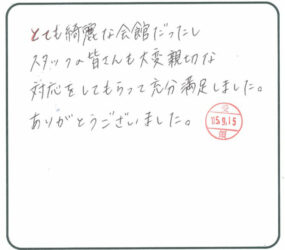 とても綺麗な会館だったし
スタッフの皆さんも大変親切な
対応をしてもらって充分満足しました。
ありがとうございました。
15.9.15